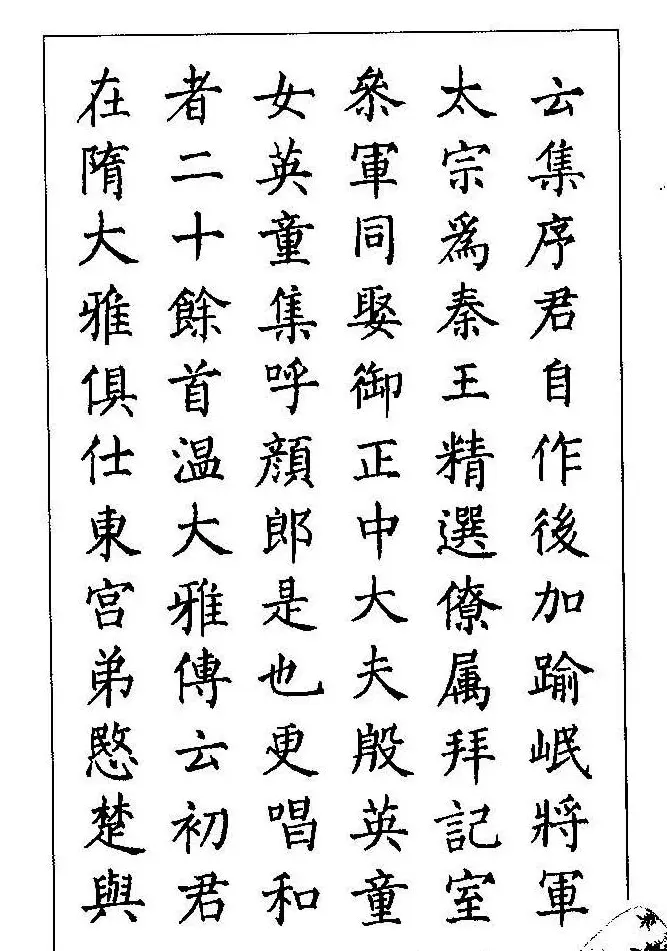 云集序君自作後加踰岷將軍
太宗爲秦王精選僚属拜記室
叅軍同娶御正中大夫殷英童
女英童集呼顔郎是也更唱和
者二十餘首温大雅傳云初君
在隋大雅俱仕東宫弟愍楚與